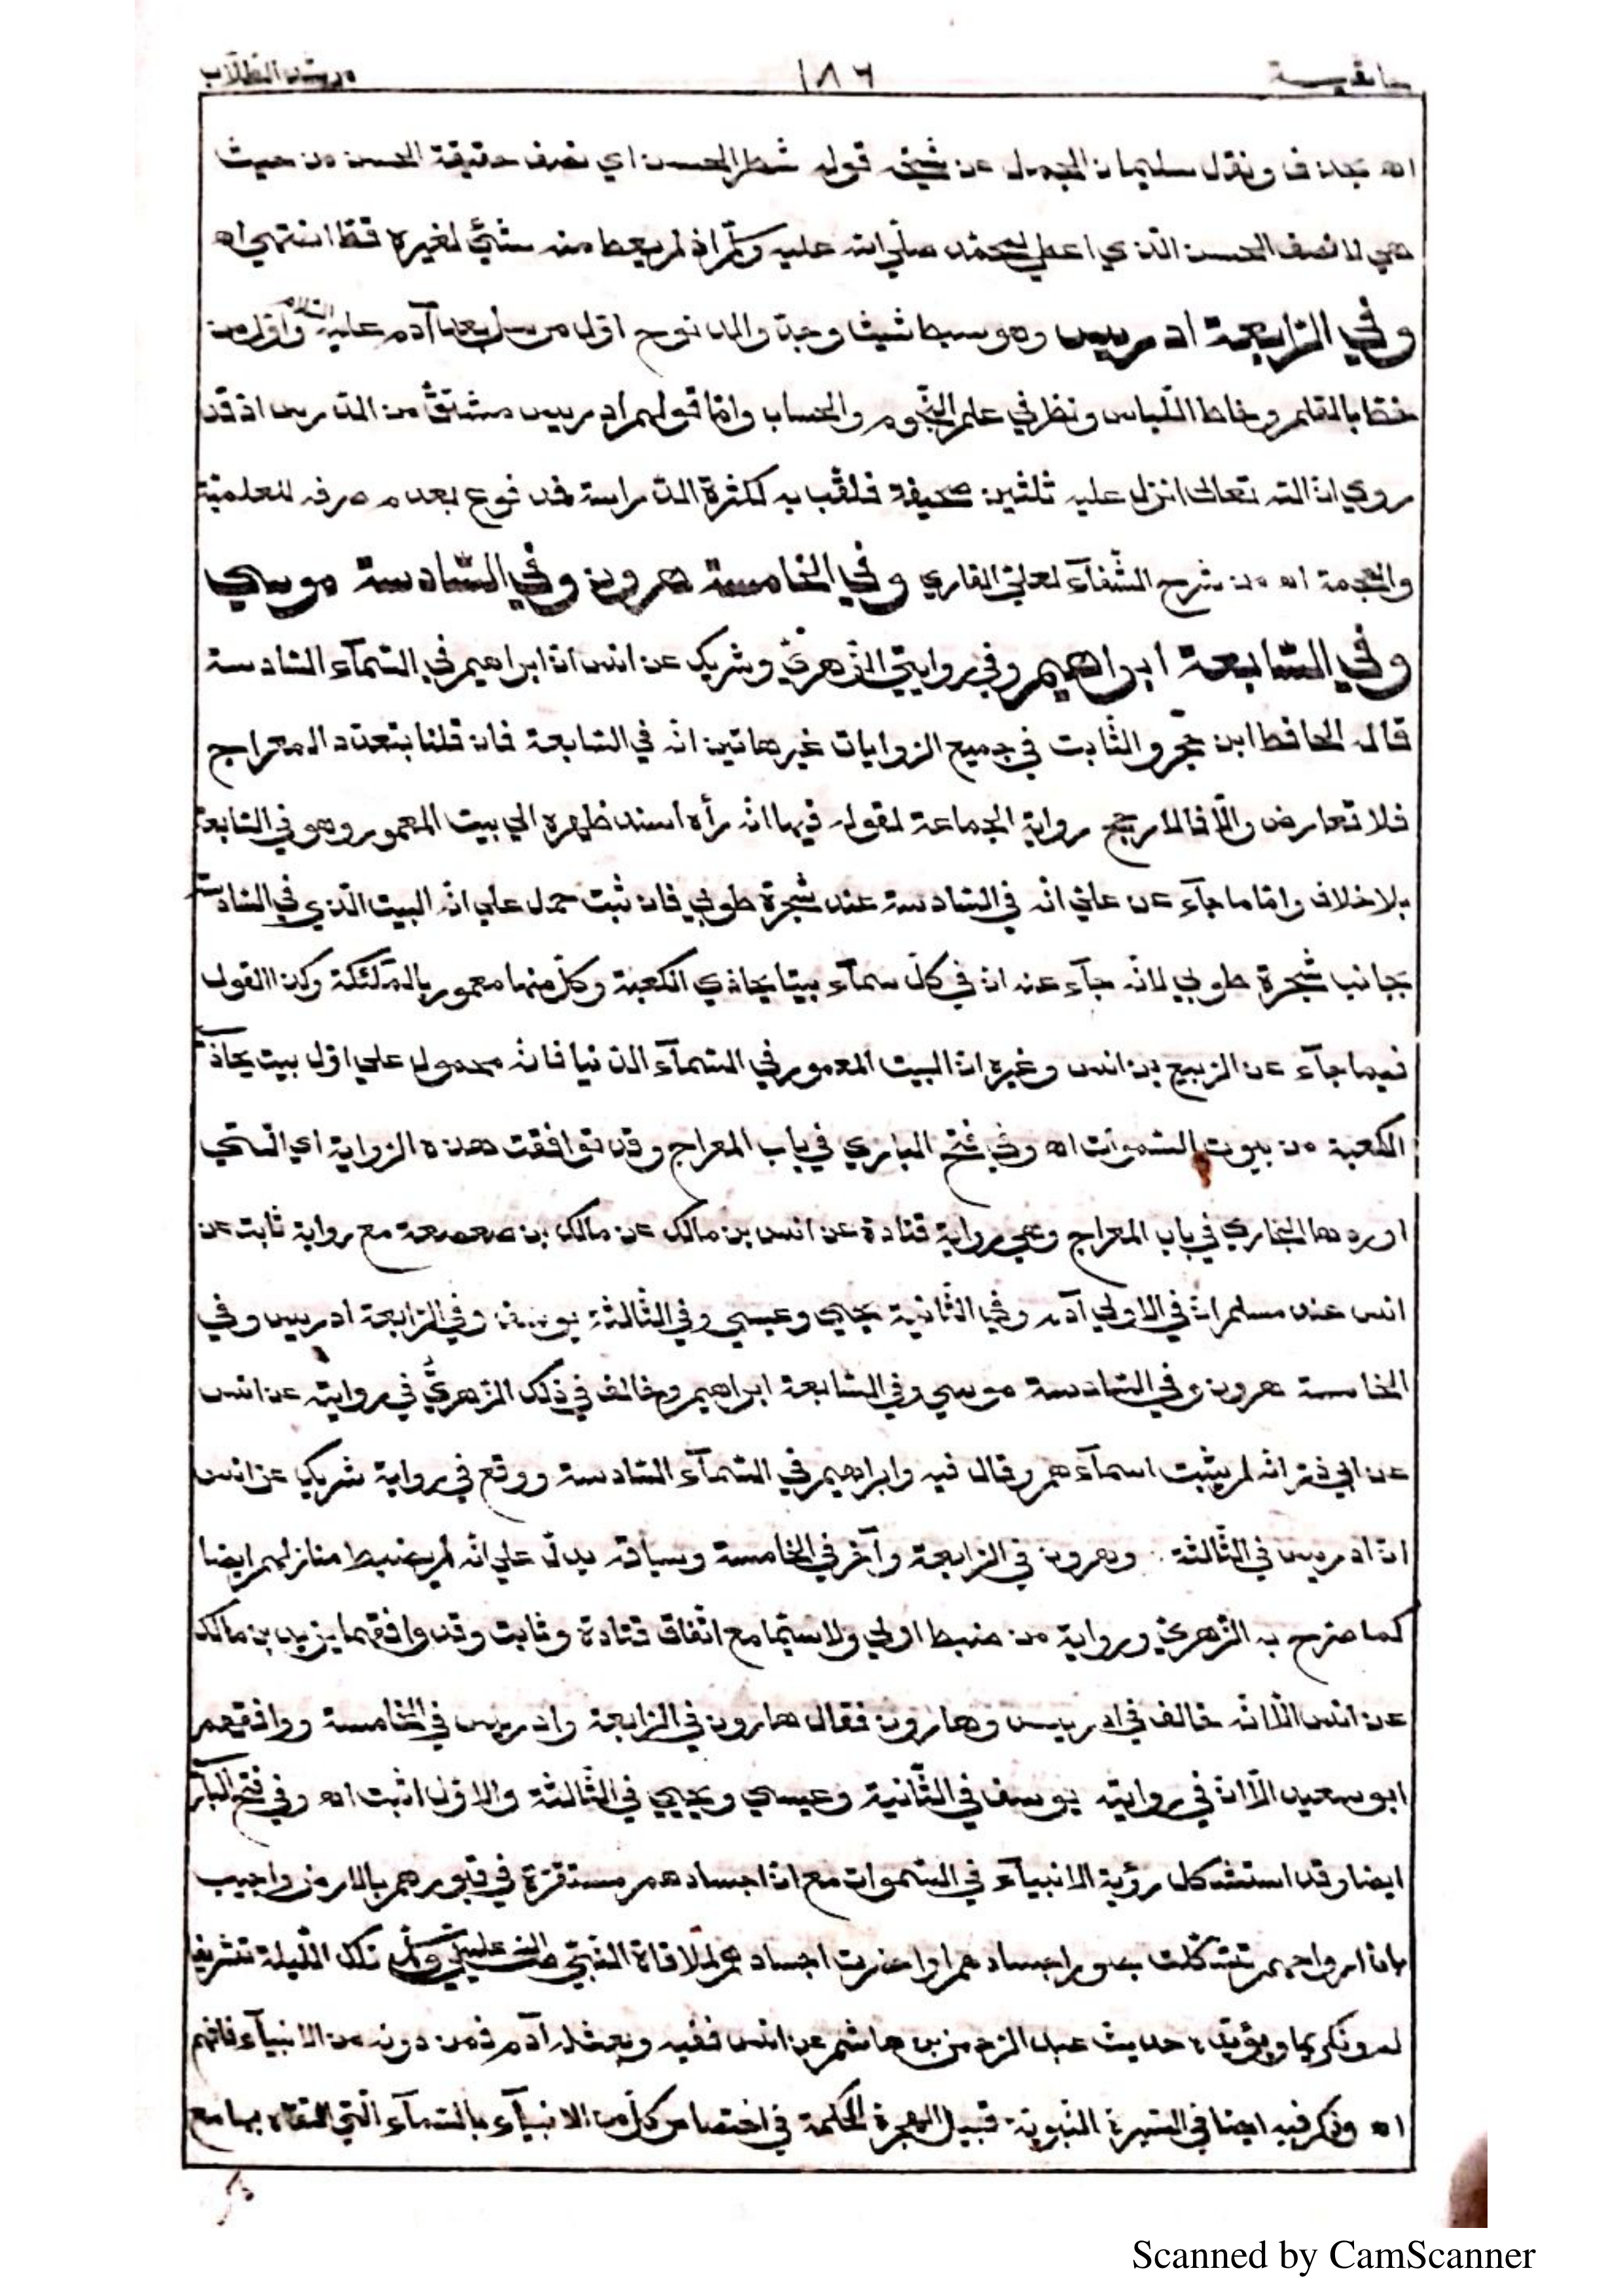 مرشد الطلاب ١٨٦
اه بحذف ونقل سليمان الجمل عن شيخه قوله شطر الحسن اي نصف حقيقة الحسن من حيث
هي لا نصف الحسن الذي اعطي لمحمد صلى الله عليه وسلم اذ لم يعط منه شيئ لغيره قط انتهى اه
وفي الرابعة ادريس وهو سبط شيث وجد والد نوح اول مرسل بعد آدم عليه السلام واول من
خط بالقلم وخاط اللباس ونظر في علم النجوم والحساب واما قولهم ادريس مشتق من الدرس اذ قد
روي ان الله تعالى انزل عليه ثلثين صحيفة فلقب به لكثرة الدراسة فمدفوع بعدم صرفه للعلمية
والعجمة اه من شرح الشفآء لعلي القاري وفي الخامسة هرون وفي السادسة موسي
وفي السابعة ابراهيم وفي روايتي الزهري وشريك عن انس ان ابراهيم في السمآء السادسة
قال الحافظ ابن حجر والثابت في جميع الروايات غير هاتين انه في السابعة فان قلنا بتعدد المعراج
فلا تعارض والا فالارجح رواية الجماعة لقوله فيها انه رأه اسند ظهره الي بيت المعمور وهو في السابعة
بلا خلاف واما ما جآء عن علي انه في السادسة عند شجرة طوبي فان ثبت حمل علي انه البيت الذي في السادسة
بجانب شجرة طوبي لانه جآء عنه ان في كل سمآء بيتا يحاذي الكعبة وكل منها معمور بالملآئكة وكذا القول
فيما جآء عن الربيع بن انس وغيره ان البيت المعمور في السمآء الدنيا فانه محمول علي اول بيت يحاذي
الكعبة من بيوت السموات اه وفي فتح الباري في باب المعراج وقد توافقت هذه الرواية اي التي
اوردها البخاري في باب المعراج وهي رواية قتادة عن انس بن مالك عن مالك بن صعصعة مع رواية ثابت عن
انس عند مسلم ان في الاولي آدم وفي الثانية يحيي وعيسي وفي الثالثة يوسف وفي الرابعة ادريس وفي
الخامسة هرون وفي السادسة موسي وفي السابعة ابراهيم وخالف في ذلك الزهري في روايته عن انس
عن ابي ذر انه لم يثبت اسمآءهم وقال فيه وابراهيم في السمآء السادسة ووقع في رواية شريك عن انس
ان ادريس في الثالثة وهرون في الرابعة وآخر في الخامسة وسياقه يدل علي انه لم يضبط منازلهم ايضا
كما صرح به الزهري ورواية من ضبط اولي ولا سيما مع اتفاق قتادة وثابت وقد وافقهما يزيد بن مالك
عن انس الا انه خالف في ادريس وهارون فقال هارون في الرابعة وادريس في الخامسة ووافقهم
ابو سعيد الا ان في روايته يوسف في الثانية وعيسي ويحيي في الثالثة والاول اثبت اه وفي فتح الباري
ايضا وقد استشكل رؤية الانبيآء في السموات مع ان اجسادهم مستقرة في قبورهم بالارض واجيب
بان ارواحهم تشكلت بصور اجسادهم او احضرت اجسادهم لملاقاة النبي صلى الله عليه وسلم تلك الليلة تشريفا
له وتكريما ويؤيده حديث عبد الرحمن بن هاشم عن انس ففيه وبعث له آدم فمن دونه من الانبيآء فافهم
اه وذكر فيه ايضا في السيرة النبوية قبيل الهجرة الحكمة في اختصاص كل من الانبيآء بالسمآء التي التقاه بها مع
Scanned by CamScanner